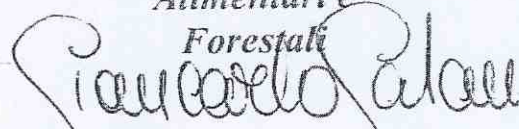 Alimentari e
Forestali
Giancarlo Galan